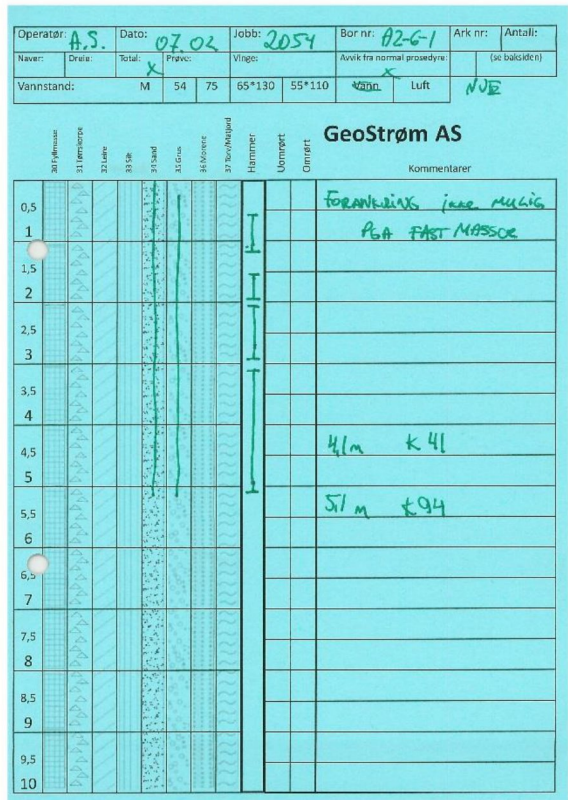 Operatør: A.S. Dato: 07.02 Jobb: 2054 Bor nr: A2-6-1 Ark nr: Antall:
Naver: Dreie: Total: X Prøve: Vinge: Avvik fra normal prosedyre: X (se baksiden)
Vannstand: M 54 75 65*130 55*110 Vann Luft
GeoStrøm AS
30 Fyllmasse 31 Tørrskorpe 32 Leire 33 Silt 34 Sand 35 Grus 36 Morene 37 Torv/Matjord Hammer Uomrørt Omrørt Kommentarer
0,5 FORANKRING ikke MULIG
1 PGA FAST MASSOR
1,5
2
2,5
3
3,5
4
4,5 4,1 m K 41
5
5,5 5,1 m K94
6
6,5
7
7,5
8
8,5
9
9,5
10